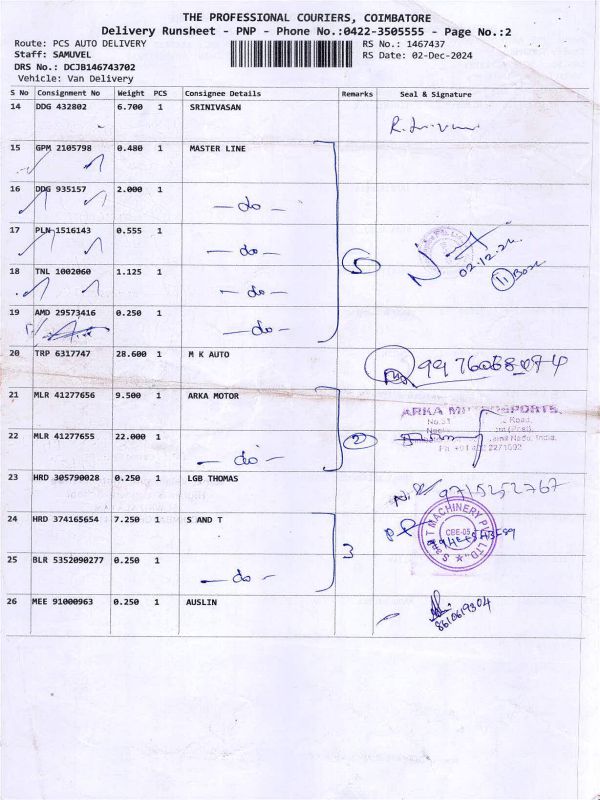 THE PROFESSIONAL COURIERS, COIMBATORE
Delivery Runsheet - PNP - Phone No.:0422-3505555 - Page No.:2
Route: PCS AUTO DELIVERY RS No.: 1467437
Staff: SAMUVEL RS Date: 02-Dec-2024
DRS No.: DCJB146743702
Vehicle: Van Delivery
S No Consignment No Weight PCS Consignee Details Remarks Seal & Signature
14 DDG 432802 6.700 1 SRINIVASAN
15 GPM 2105798 0.480 1 MASTER LINE
16 DDG 935157 2.000 1 - do -
17 PLN 1516143 0.555 1 - do -
5
02.12.24
18 TNL 1002060 1.125 1 - do -
11 Box
19 AMD 29573416 0.250 1 - do -
20 TRP 6317747 28.600 1 M K AUTO
21 MLR 41277656 9.500 1 ARKA MOTOR
ARKA
Road,
2
22 MLR 41277655 22.000 1 - do -
Nadu, India.
23 HRD 305790028 0.250 1 LGB THOMAS 9715252767
24 HRD 374165654 7.250 1 S AND T
MACHINERY PVT LTD.
CBE-05
3
25 BLR 5352090277 0.250 1 - do -
26 MEE 91000963 0.250 1 AUSLIN